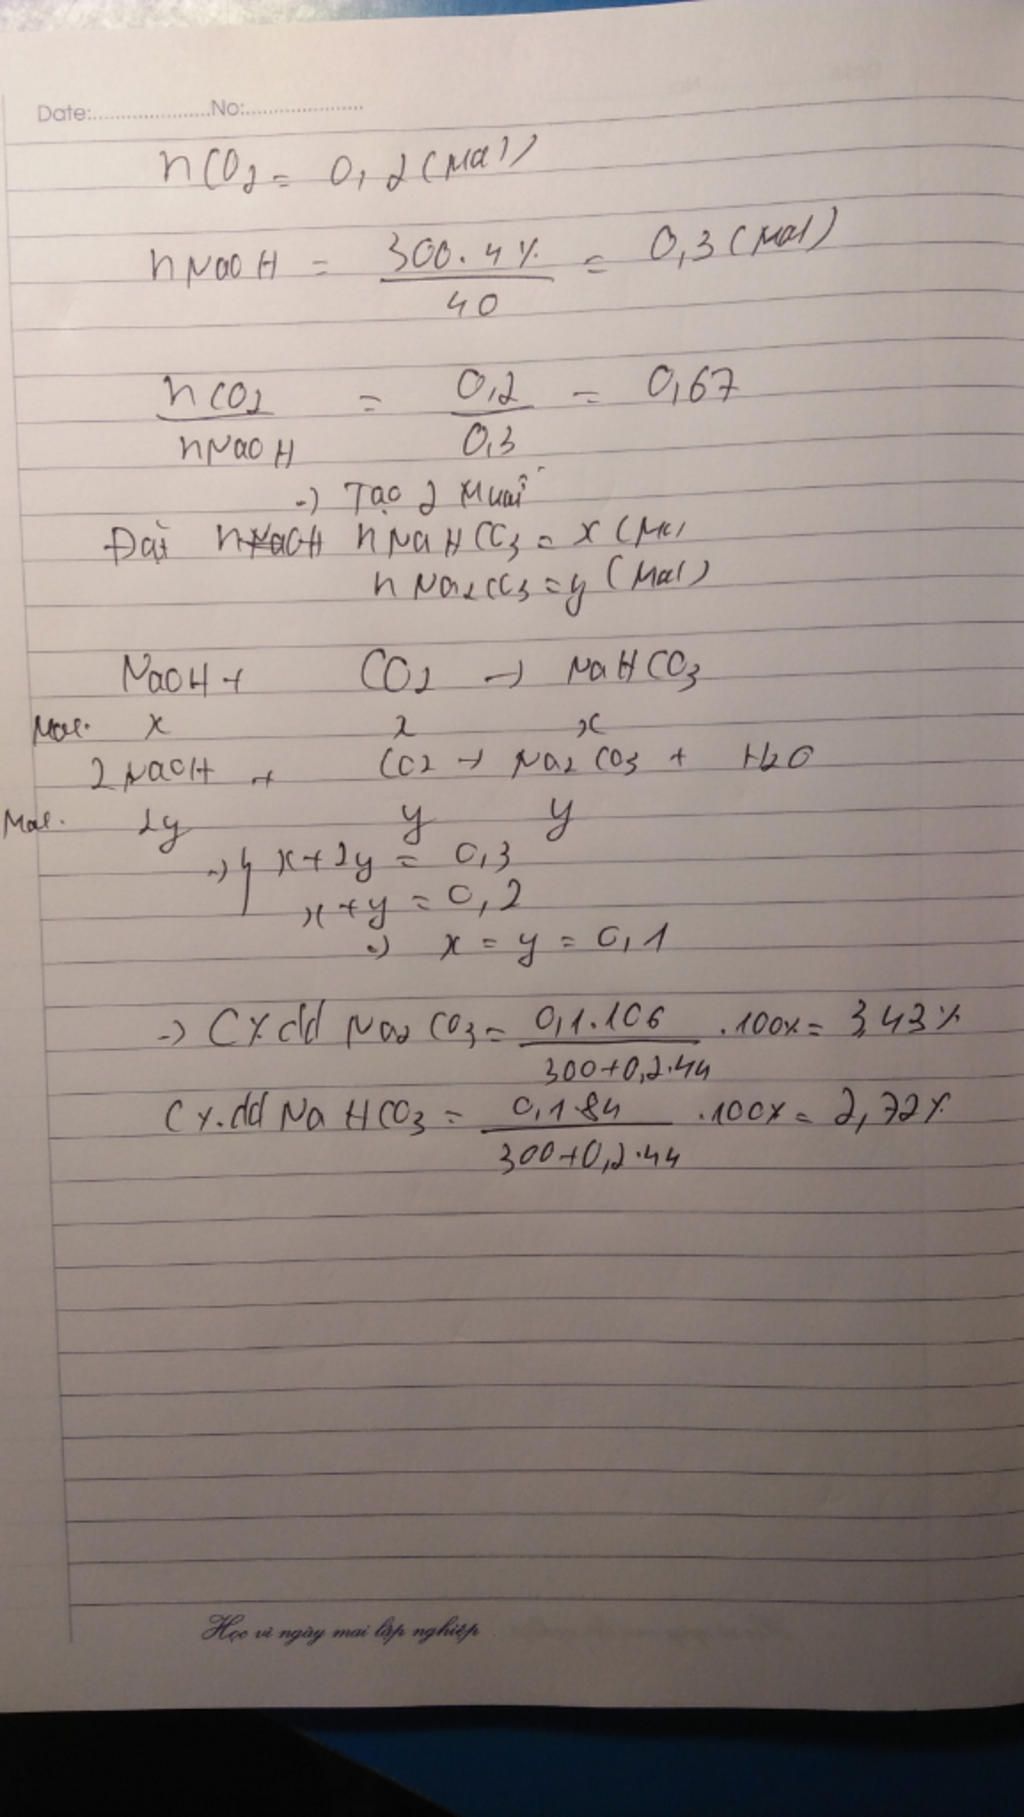 Date:......................No:......................
nCO2 = 0,2 (mol)
nNaOH = 300.4% / 40 = 0,3 (mol)
nCO2 / nNaOH = 0,2 / 0,3 = 0,67
-> Tạo 2 muối
Đặt nNaOH nNaHCO3 = x (mol
nNa2CO3 = y (mol)
NaOH + CO2 -> NaHCO3
Mol. x x x
2NaOH + CO2 -> Na2CO3 + H2O
Mol. 2y y y
-> { x+2y = 0,3
x+y = 0,2
-> x = y = 0,1
-> C%dd Na2CO3 = 0,1.106 / 300+0,2.44 .100% = 3,43%
C%.dd NaHCO3 = 0,1.84 / 300+0,2.44 .100% = 2,72%
Học vì ngày mai lập nghiệp